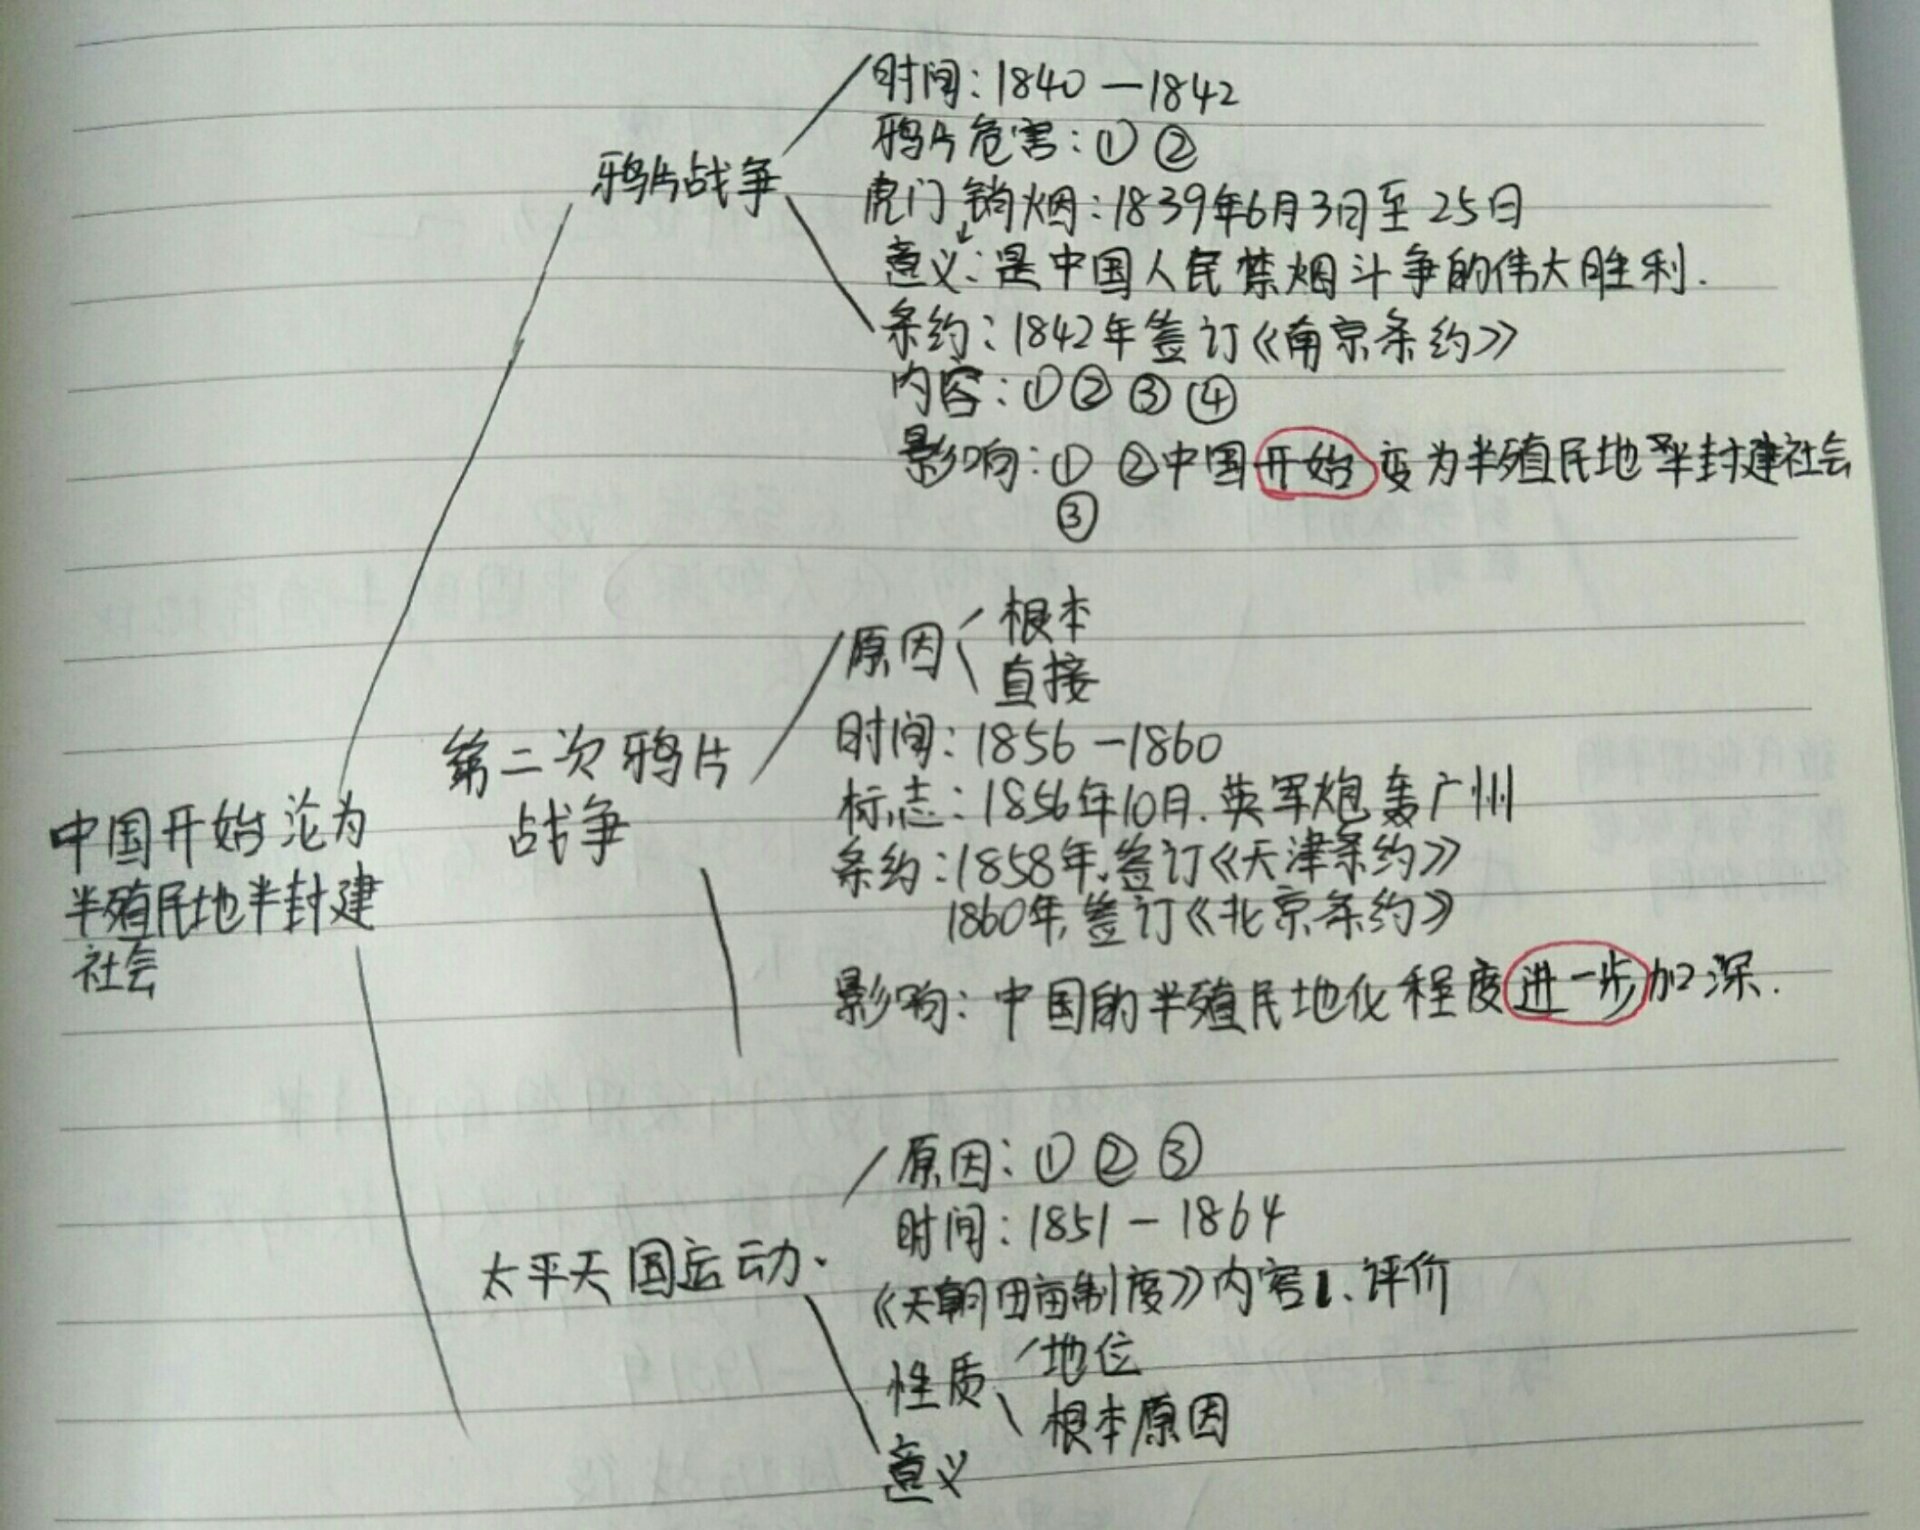 时间：1840—1842
鸦片危害：① ②
鸦片战争
虎门销烟：1839年6月3日至25日
意义：是中国人民禁烟斗争的伟大胜利.
条约：1842年签订《南京条约》
内容：① ② ③ ④
影响：① ②中国开始变为半殖民地半封建社会
③
原因
根本
直接
时间：1856—1860
第二次鸦片
战争
标志：1856年10月.英军炮轰广州
条约：1858年,签订《天津条约》
1860年,签订《北京条约》
影响：中国的半殖民地化程度进一步加深.
中国开始沦为
半殖民地半封建
社会
原因：① ② ③
时间：1851—1864
太平天国运动.
《天朝田亩制度》内容、评价
性质
地位
根本原因
意义